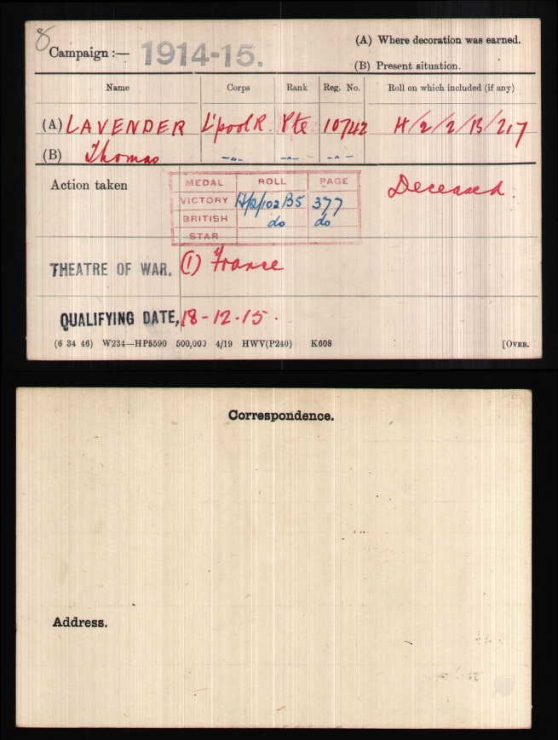 8
Campaign :— 1914-15.
(A) Where decoration was earned.
(B) Present situation.
Name Corps Rank Reg. No. Roll on which included (if any)
(A) LAVENDER L'pool R. Pte 10742 H/2/2/B/217
(B) Thomas -„- -„- -„-
Action taken
MEDAL ROLL PAGE
VICTORY H/2/102 B5 377
BRITISH do do
STAR
Deceased.
THEATRE OF WAR. (1) France
QUALIFYING DATE, 18-12-15.
(6 34 46) W234—HP5590 500,000 4/19 HWV(P240) K608 [OVER.
Correspondence.
Address.